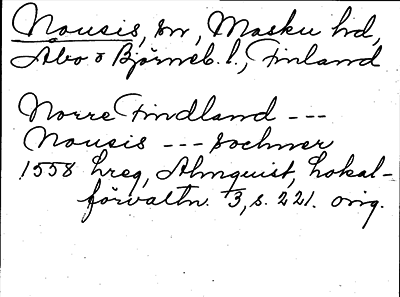 Nousis, sn, Masku hd,
Åbo o Björneb. l., Finland
Norre Findland ---
Nousis --- Sochner
1558 hreg, Almquist, Lokal-
förvaltn. 3, s. 221. orig.